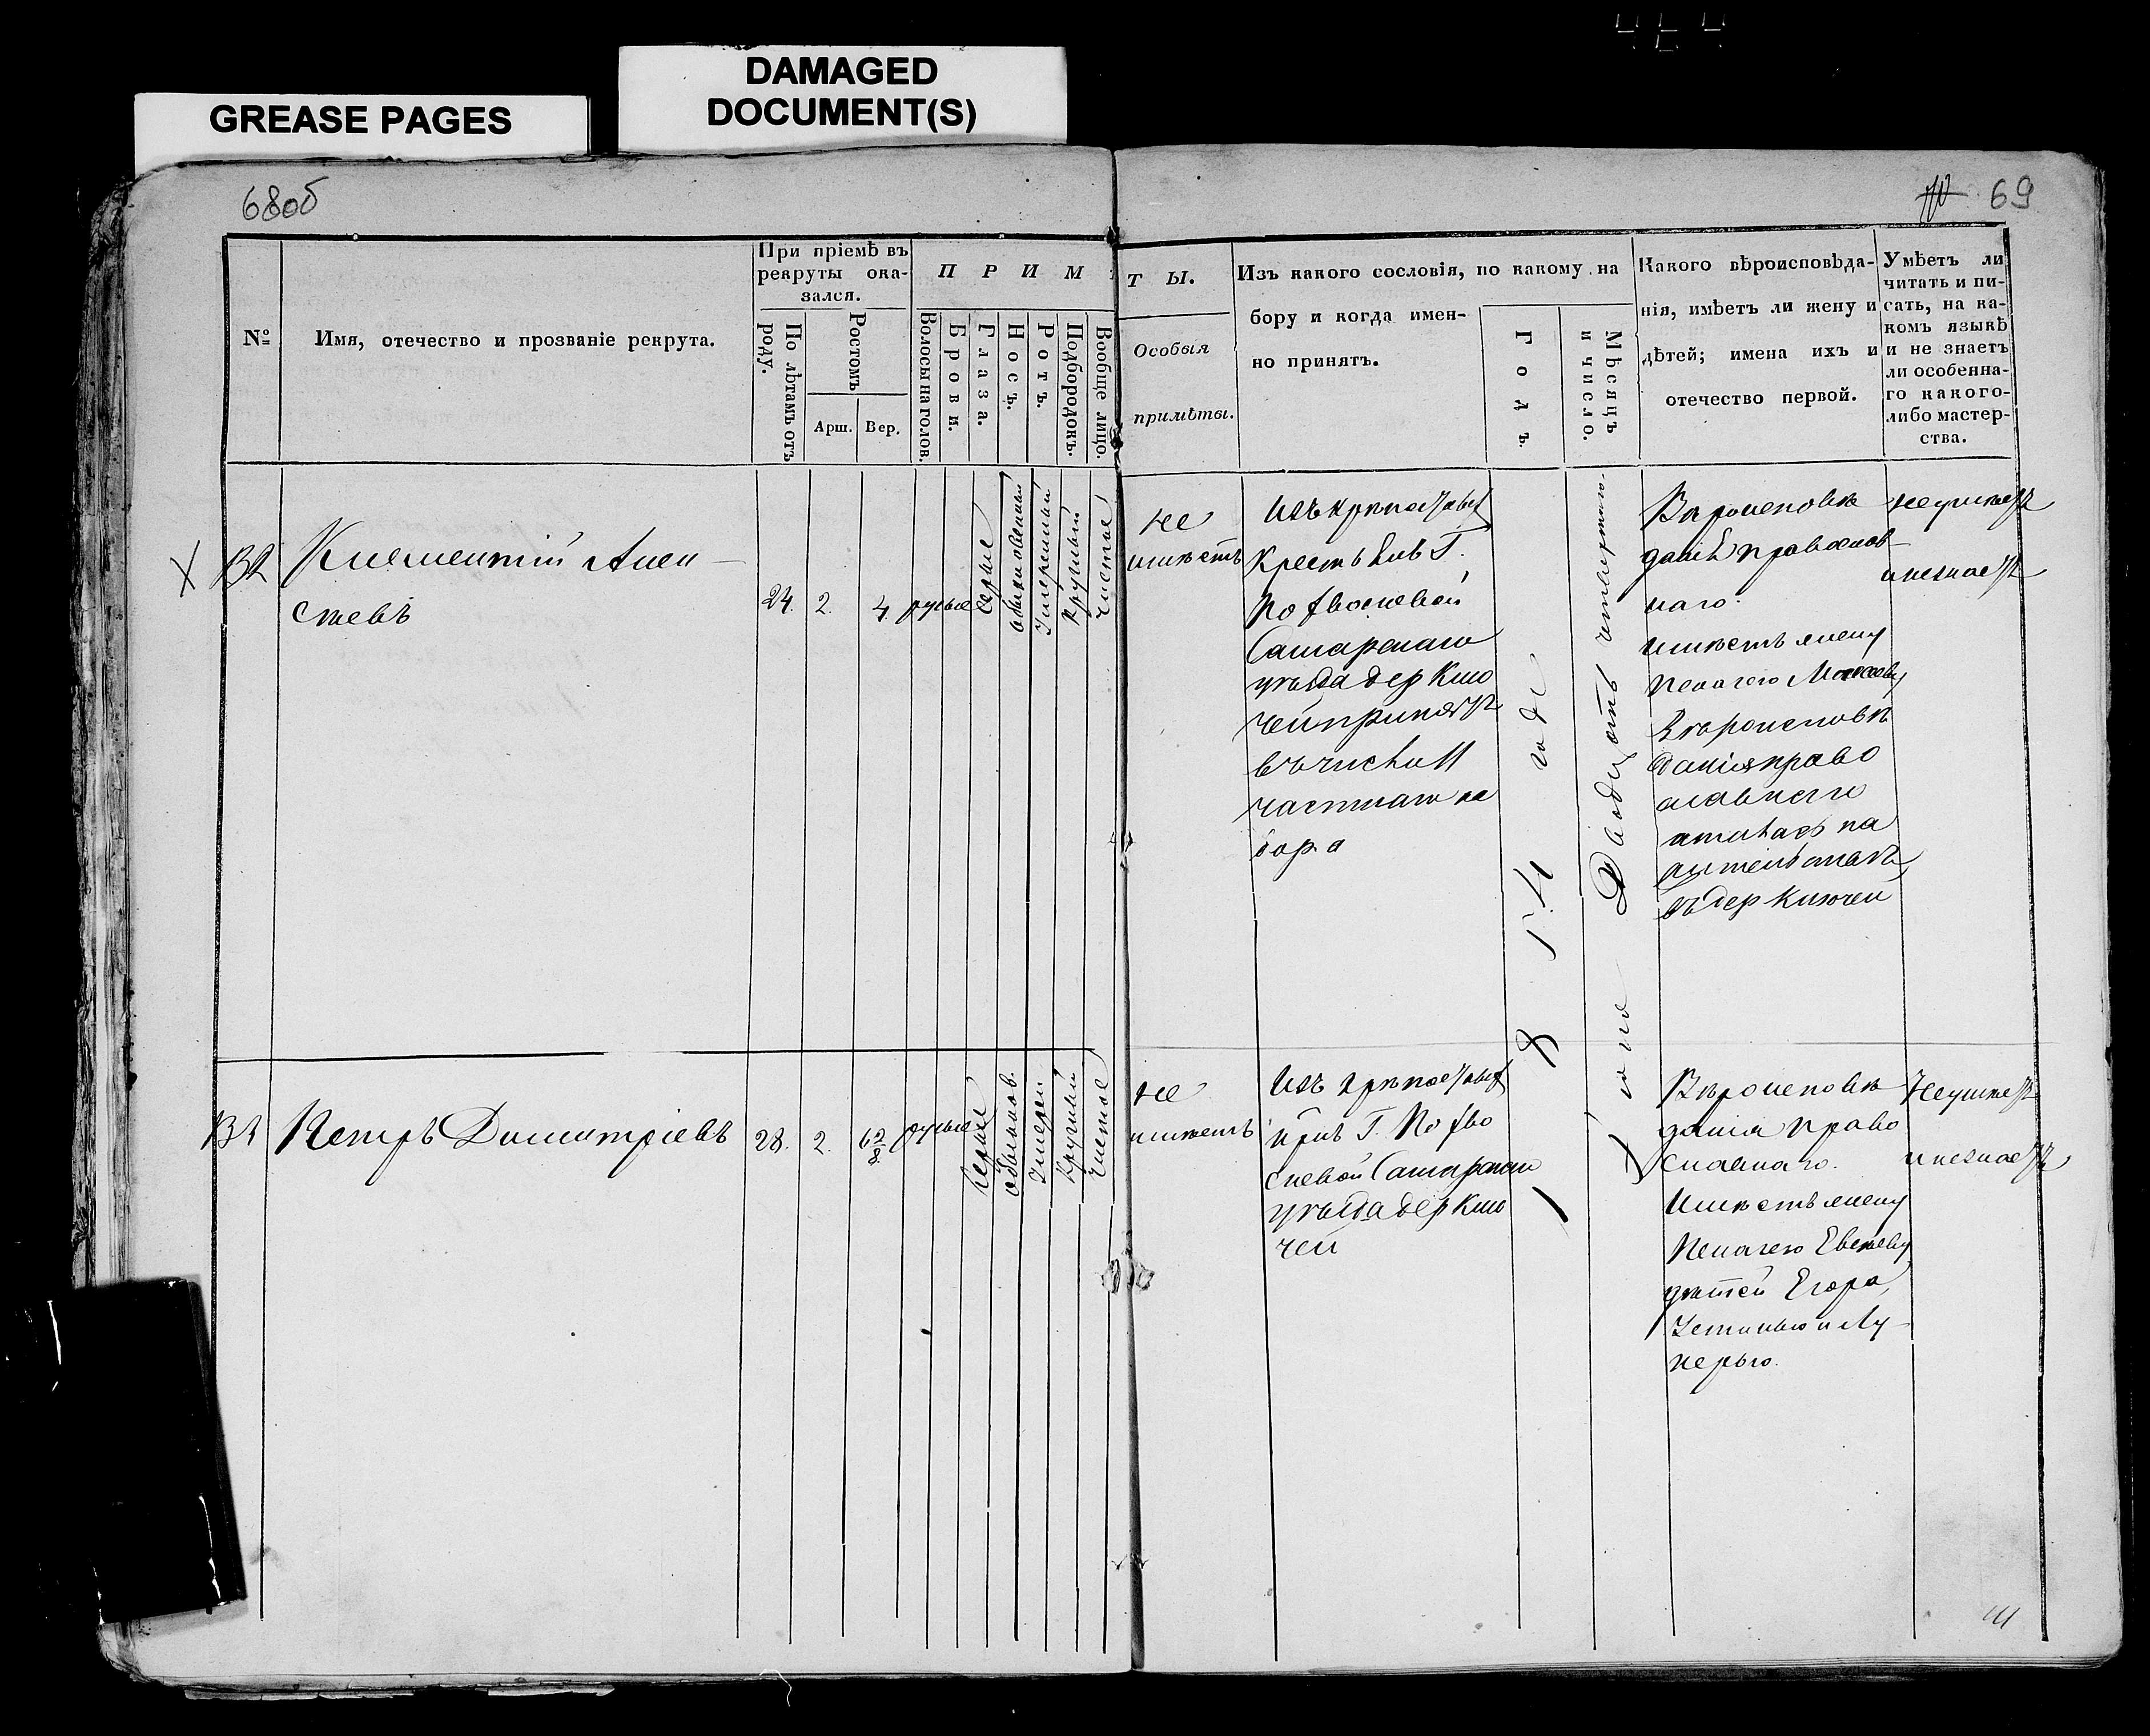 GREASE PAGES
DAMAGED
DOCUMENT(S)
68об
69
№
Имя, отечество и прозваніе рекрута.
При пріемѣ въ
рекруты ока-
зался.
По лѣтамъ отъ
роду.
Ростомъ
Арш. Вер.
П Р И М
Волосы на голов.
Брови.
Глаза.
Носъ.
Ротъ.
Подбородокъ.
Вообще лицо.
Т Ы.
Особыя
примѣты.
Изъ какого сословія, по какому на
бору и когда имен-
но принятъ.
Годъ.
Мѣсяцъ
и число.
Какого вѣроисповѣда-
нія, имѣетъ ли жену и
дѣтей; имена ихъ и
отечество первой.
Умѣетъ ли
читать и пи-
сать, на ка-
комъ языкѣ
и не знаетъ
ли особенна-
го какого-
либо мастер-
ства.
Климентій Алек-
сѣевъ
24. 2. 4. русые
сѣрые
обыкновенный
умѣренный
круглый
чистое
не
имѣетъ
Изъ крѣпост
Крестьянъ Г.
Самарскаго
уѣзда дер Клю
чей принятъ
въ число
частнаго на
бора
1854 года
двадцать четвертаго
Вѣроисповѣ
даній православ-
наго.
имѣетъ жену
Пелагею
Вѣроисповѣ
данія право
славнаго
жительствѣ
въ дер Ключей
неумѣетъ
и незнаетъ
Петръ Димитріевъ
28. 2. 6 2/8 русые
сѣрые
обыкнов.
умѣрен
круглый
чистое
не
имѣетъ
Изъ крѣпост
Самарскаго
уѣзда дер Клю
чей
Вѣроисповѣ
данія право
славнаго.
Имѣетъ жену
Пелагею
дѣтей Егора,
Устинью и Лу-
керью.
Неумѣетъ
и незнаетъ